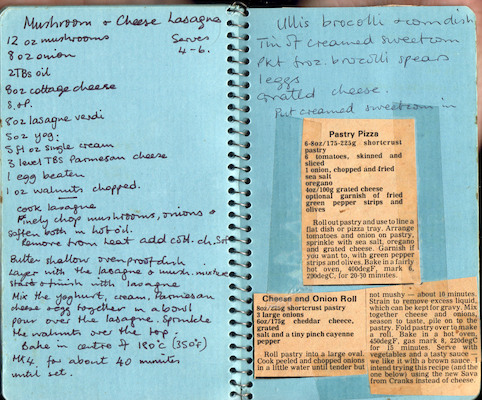 Mushroom & Cheese Lasagne
12 oz mushrooms Serves
8 oz onion 4-6.
2TBs oil
8oz cottage cheese
S.&P.
8oz lasagne verdi
5oz yog.
5 fl oz single cream
3 level TBS Parmesan cheese
1 egg beaten
1 oz walnuts chopped.
cook lasagne
Finely chop mushrooms, onions &
soften both in hot oil.
Remove from heat add cott. ch. S&P
Butter shallow ovenproof dish
Layer with the lasagne & mush. mixture
start & finish with lasagne
Mix the yoghurt, cream, Parmesan
cheese & egg together in a bowl
pour over the lasagne. Sprinkle
the walnuts over the top.
Bake in centre of 180°C (350°F)
Mk 4. for about 40 minutes
until set.
Ullis brocolli & corn dish
Tin of creamed sweetcorn
Pkt froz. brocolli spears
1 eggs
Grated cheese.
Put creamed sweetcorn in
Pastry Pizza
6-8oz/175-225g shortcrust
pastry
6 tomatoes, skinned and
sliced
1 onion, chopped and fried
sea salt
oregano
4oz/100g grated cheese
optional garnish of fried
green pepper strips and
olives
Roll out pastry and use to line a
flat dish or pizza tray. Arrange
tomatoes and onion on pastry,
sprinkle with sea salt, oregano
and grated cheese. Garnish if
you want to, with green pepper
strips and olives. Bake in a fairly
hot oven, 400degF, mark 6,
200degC, for 20-30 minutes.
Cheese and Onion Roll
8oz/225g shortcrust pastry
3 large onions
6oz/175g cheddar cheese,
grated
salt and a tiny pinch cayenne
pepper
Roll pastry into a large oval.
Cook peeled and chopped onions
in a little water until tender but
not mushy — about 10 minutes.
Strain to remove excess liquid,
which can be kept for gravy. Mix
together cheese and onions,
season to taste, pile on to the
pastry. Fold pastry over to make
a roll. Bake in a hot oven,
450degF, gas mark 8, 220degC
for 15 minutes. Serve with
vegetables and a tasty sauce —
we like it with a brown sauce. I
intend trying this recipe (and the
one below) using the new Sava
from Cranks instead of cheese.